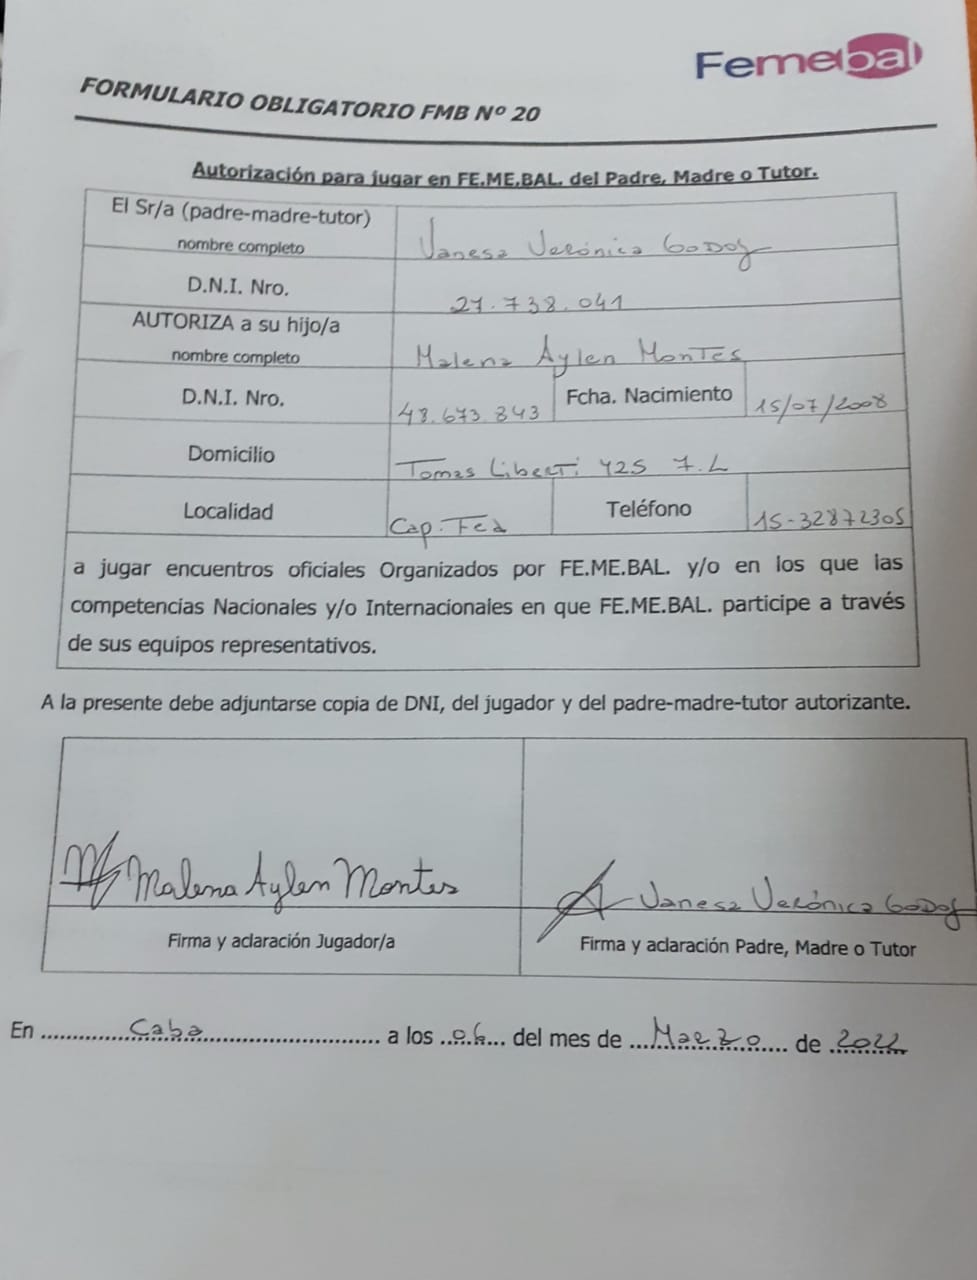 Femebal
FORMULARIO OBLIGATORIO FMB Nº 20
Autorización para jugar en FE.ME.BAL. del Padre, Madre o Tutor.
El Sr/a (padre-madre-tutor)
nombre completo
Vanesa Verónica Godoy
D.N.I. Nro.
27.738.041
AUTORIZA a su hijo/a
nombre completo
Malena Aylen Montes
D.N.I. Nro.
48.673.843
Fcha. Nacimiento
15/07/2008
Domicilio
Tomas Liberti 425 7.L
Localidad
Cap. Fed
Teléfono
15-32872305
a jugar encuentros oficiales Organizados por FE.ME.BAL. y/o en los que las
competencias Nacionales y/o Internacionales en que FE.ME.BAL. participe a través
de sus equipos representativos.
A la presente debe adjuntarse copia de DNI, del jugador y del padre-madre-tutor autorizante.
Malena Aylen Montes
Firma y aclaración Jugador/a
Vanesa Verónica Godoy
Firma y aclaración Padre, Madre o Tutor
En Caba a los 06 del mes de Marzo de 2022